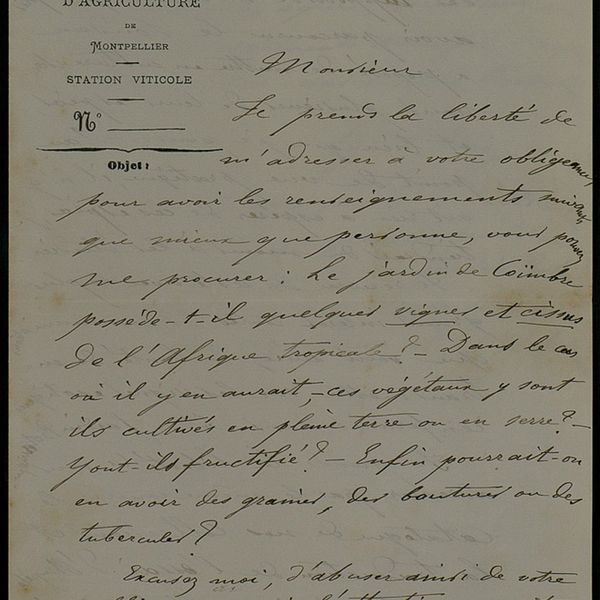 D'AGRICULTURE
DE
MONTPELLIER
STATION VITICOLE
N°
Objet :
Monsieur
Je prends la liberté de
m'adresser à votre obligeance
pour avoir les renseignements suivants
que mieux que personne, vous pouvez
me procurer : Le jardin de Coïmbre
possède-t-il quelques vignes et cissus
de l'Afrique tropicale ? – Dans le cas
où il y en aurait, – ces végétaux y sont
ils cultivés en pleine terre ou en serre ? –
Y ont-ils fructifié ? – Enfin pourrait-on
en avoir des graines, des boutures ou des
tubercules ?
Excusez moi, d'abuser ainsi de votre